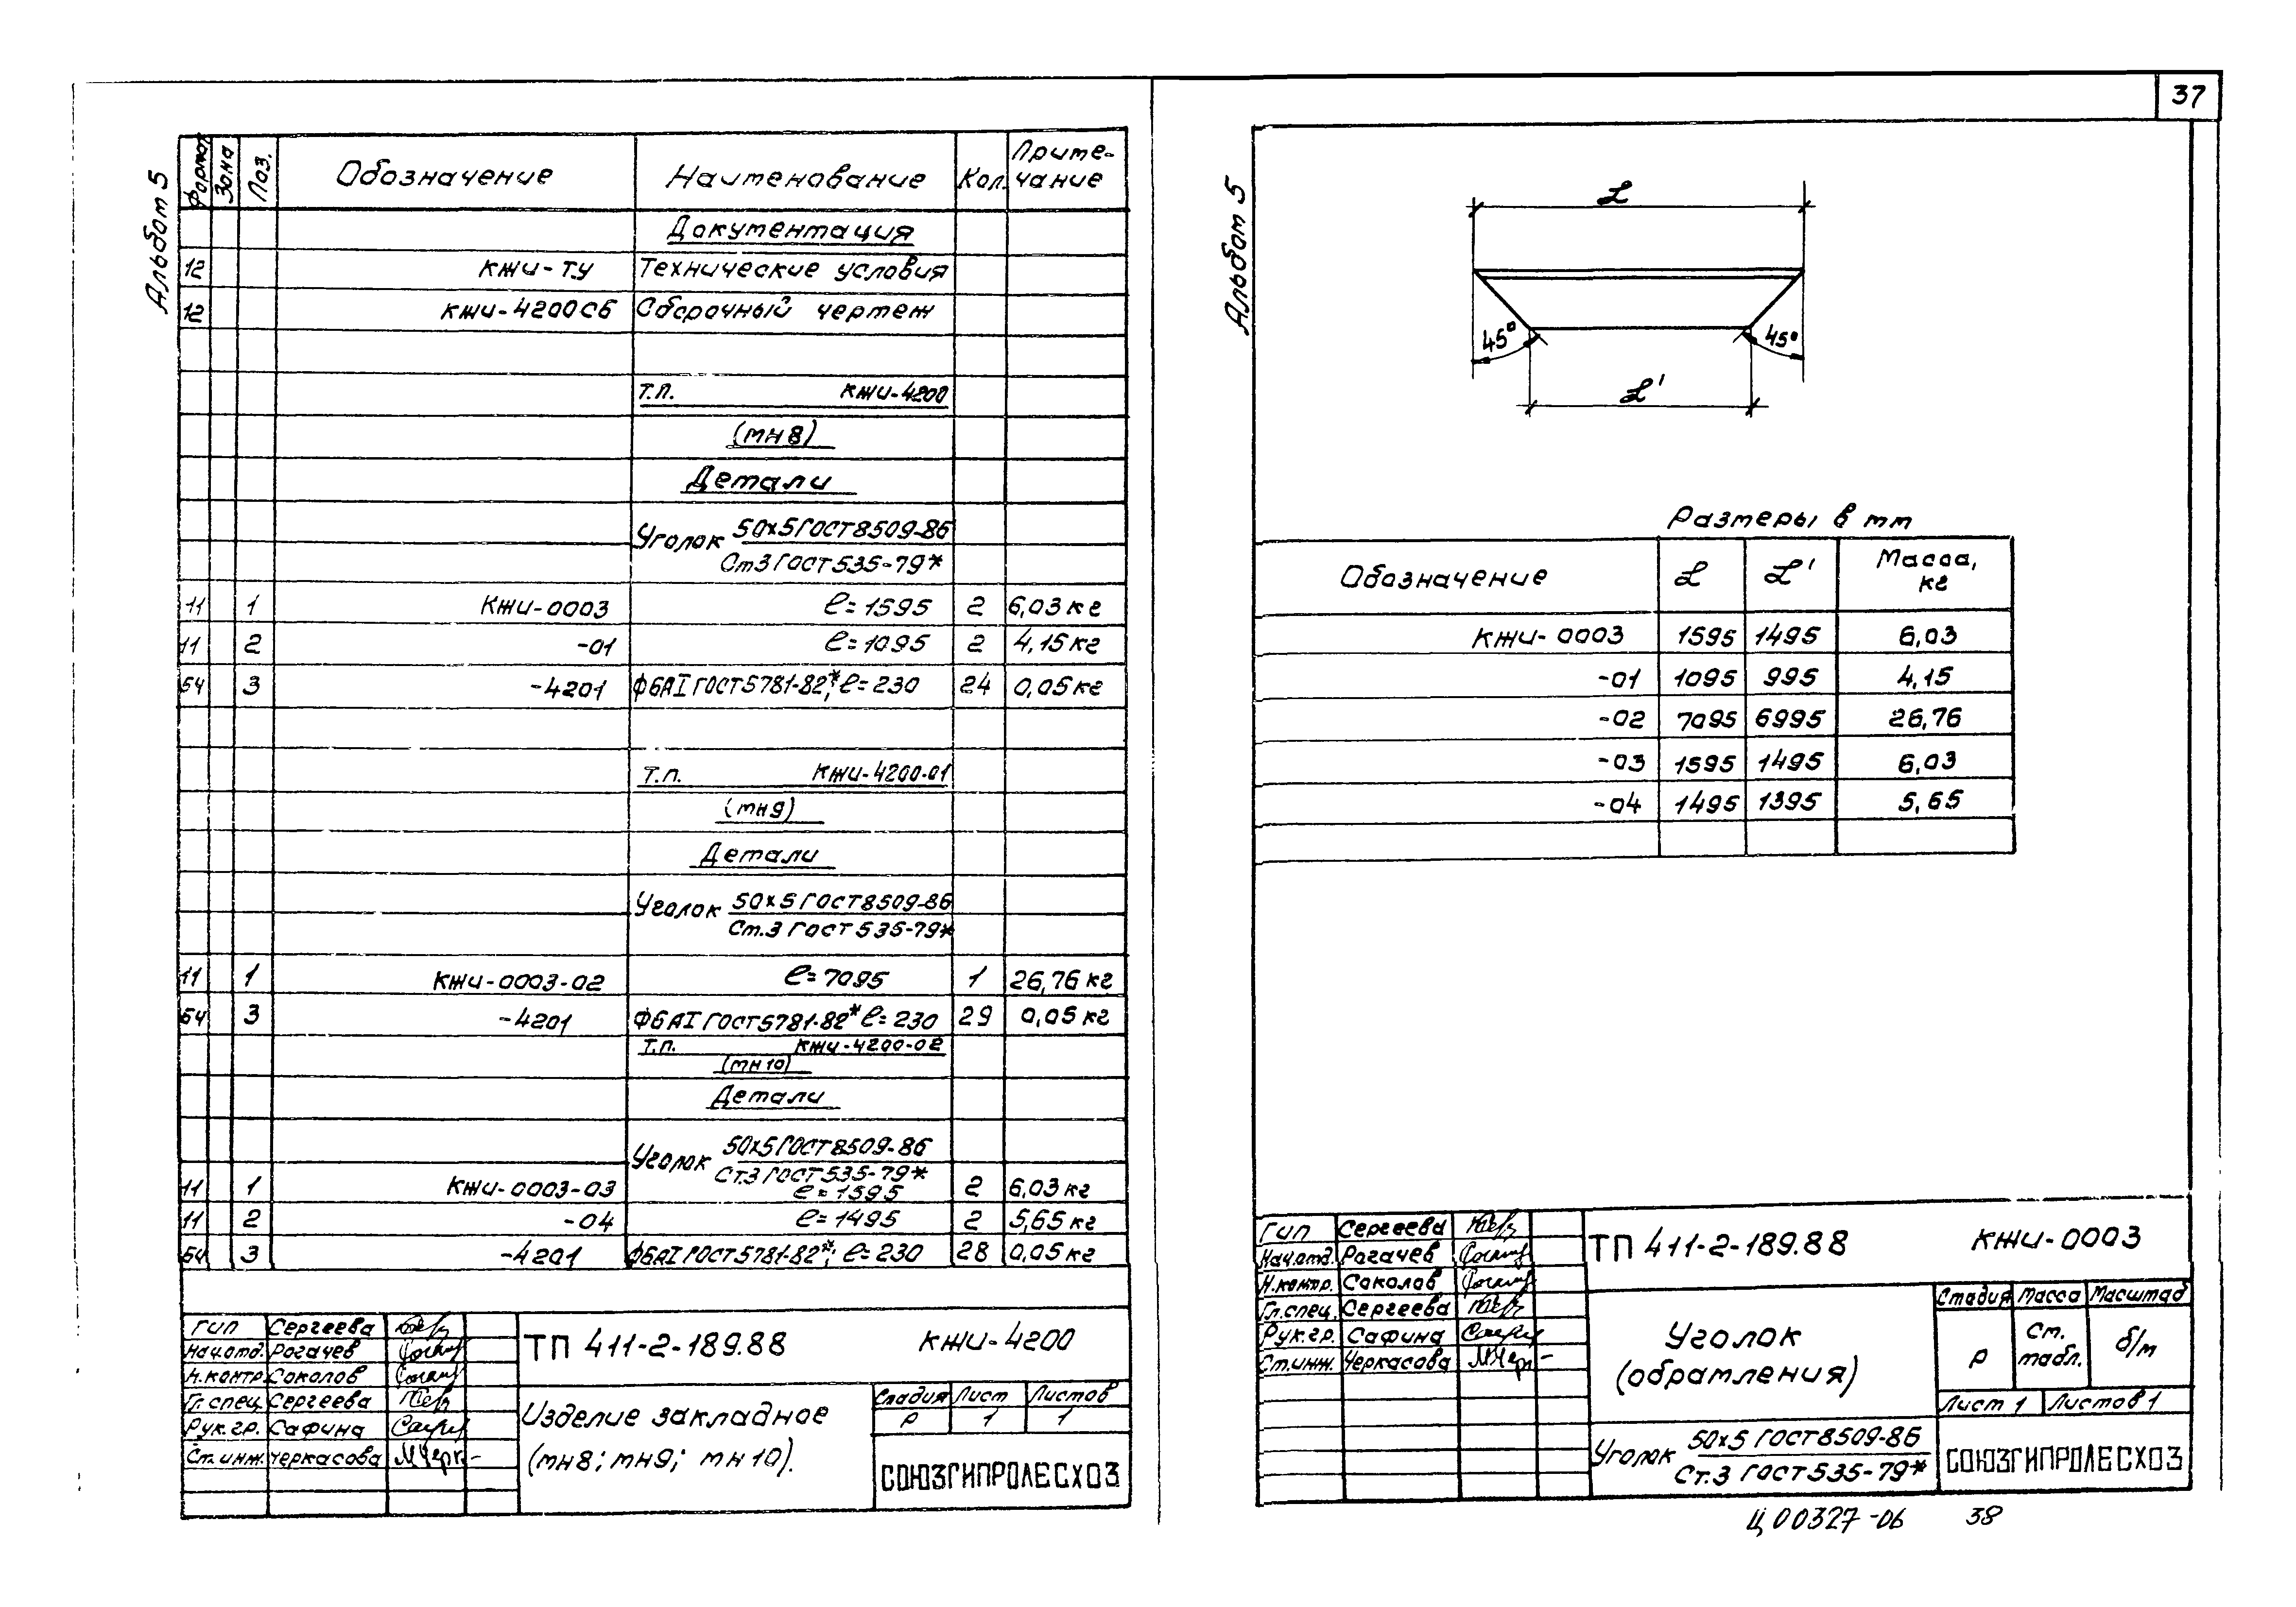 37
Альбом 5
Формат Зона Поз. Обозначение Наименование Кол. Примечание
Документация
12 КЖИ-ТУ Технические условия
12 КЖИ-4200СБ Сборочный чертеж
Т.П. КЖИ-4200
(МН8)
Детали
Уголок 50х5 ГОСТ 8509-86
Ст3 ГОСТ 535-79*
11 1 КЖИ-0003 ℓ=1595 2 6,03 кг
11 2 -01 ℓ=1095 2 4,15 кг
БЧ 3 -4201 Ф6АI ГОСТ 5781-82*, ℓ=230 24 0,05 кг
Т.П. КЖИ-4200-01
(МН9)
Детали
Уголок 50х5 ГОСТ 8509-86
Ст.3 ГОСТ 535-79*
11 1 КЖИ-0003-02 ℓ=7095 1 26,76 кг
БЧ 3 -4201 Ф6АI ГОСТ 5781-82* ℓ=230 29 0,05 кг
Т.П. КЖИ-4200-02
(МН10)
Детали
Уголок 50х5 ГОСТ 8509-86
Ст.3 ГОСТ 535-79*
11 1 КЖИ-0003-03 ℓ=1595 2 6,03 кг
11 2 -04 ℓ=1495 2 5,65 кг
БЧ 3 -4201 Ф6АI ГОСТ 5781-82*; ℓ=230 28 0,05 кг
ГИП Сергеева
Нач.отд. Рогачев
Н.контр. Соколов
Гл.спец. Сергеева
Рук.гр. Сафина
Ст.инж. Черкасова
ТП 411-2-189.88 КЖИ-4200
Изделие закладное
(МН8; МН9; МН10).
Стадия Лист Листов
Р 1 1
СОЮЗГИПРОЛЕСХОЗ
Альбом 5
L
45° 45°
L'
Размеры в мм
Обозначение L L' Масса, кг
КЖИ-0003 1595 1495 6,03
-01 1095 995 4,15
-02 7095 6995 26,76
-03 1595 1495 6,03
-04 1495 1395 5,65
ГИП Сергеева
Нач.отд. Рогачев
Н.контр. Соколов
Гл.спец. Сергеева
Рук.гр. Сафина
Ст.инж. Черкасова
ТП 411-2-189.88 КЖИ-0003
Уголок
(обрамления)
Стадия Масса Масштаб
Р См. табл. б/м
Лист 1 Листов 1
Уголок 50х5 ГОСТ 8509-86
Ст.3 ГОСТ 535-79*
СОЮЗГИПРОЛЕСХОЗ
Ц00327-06 38